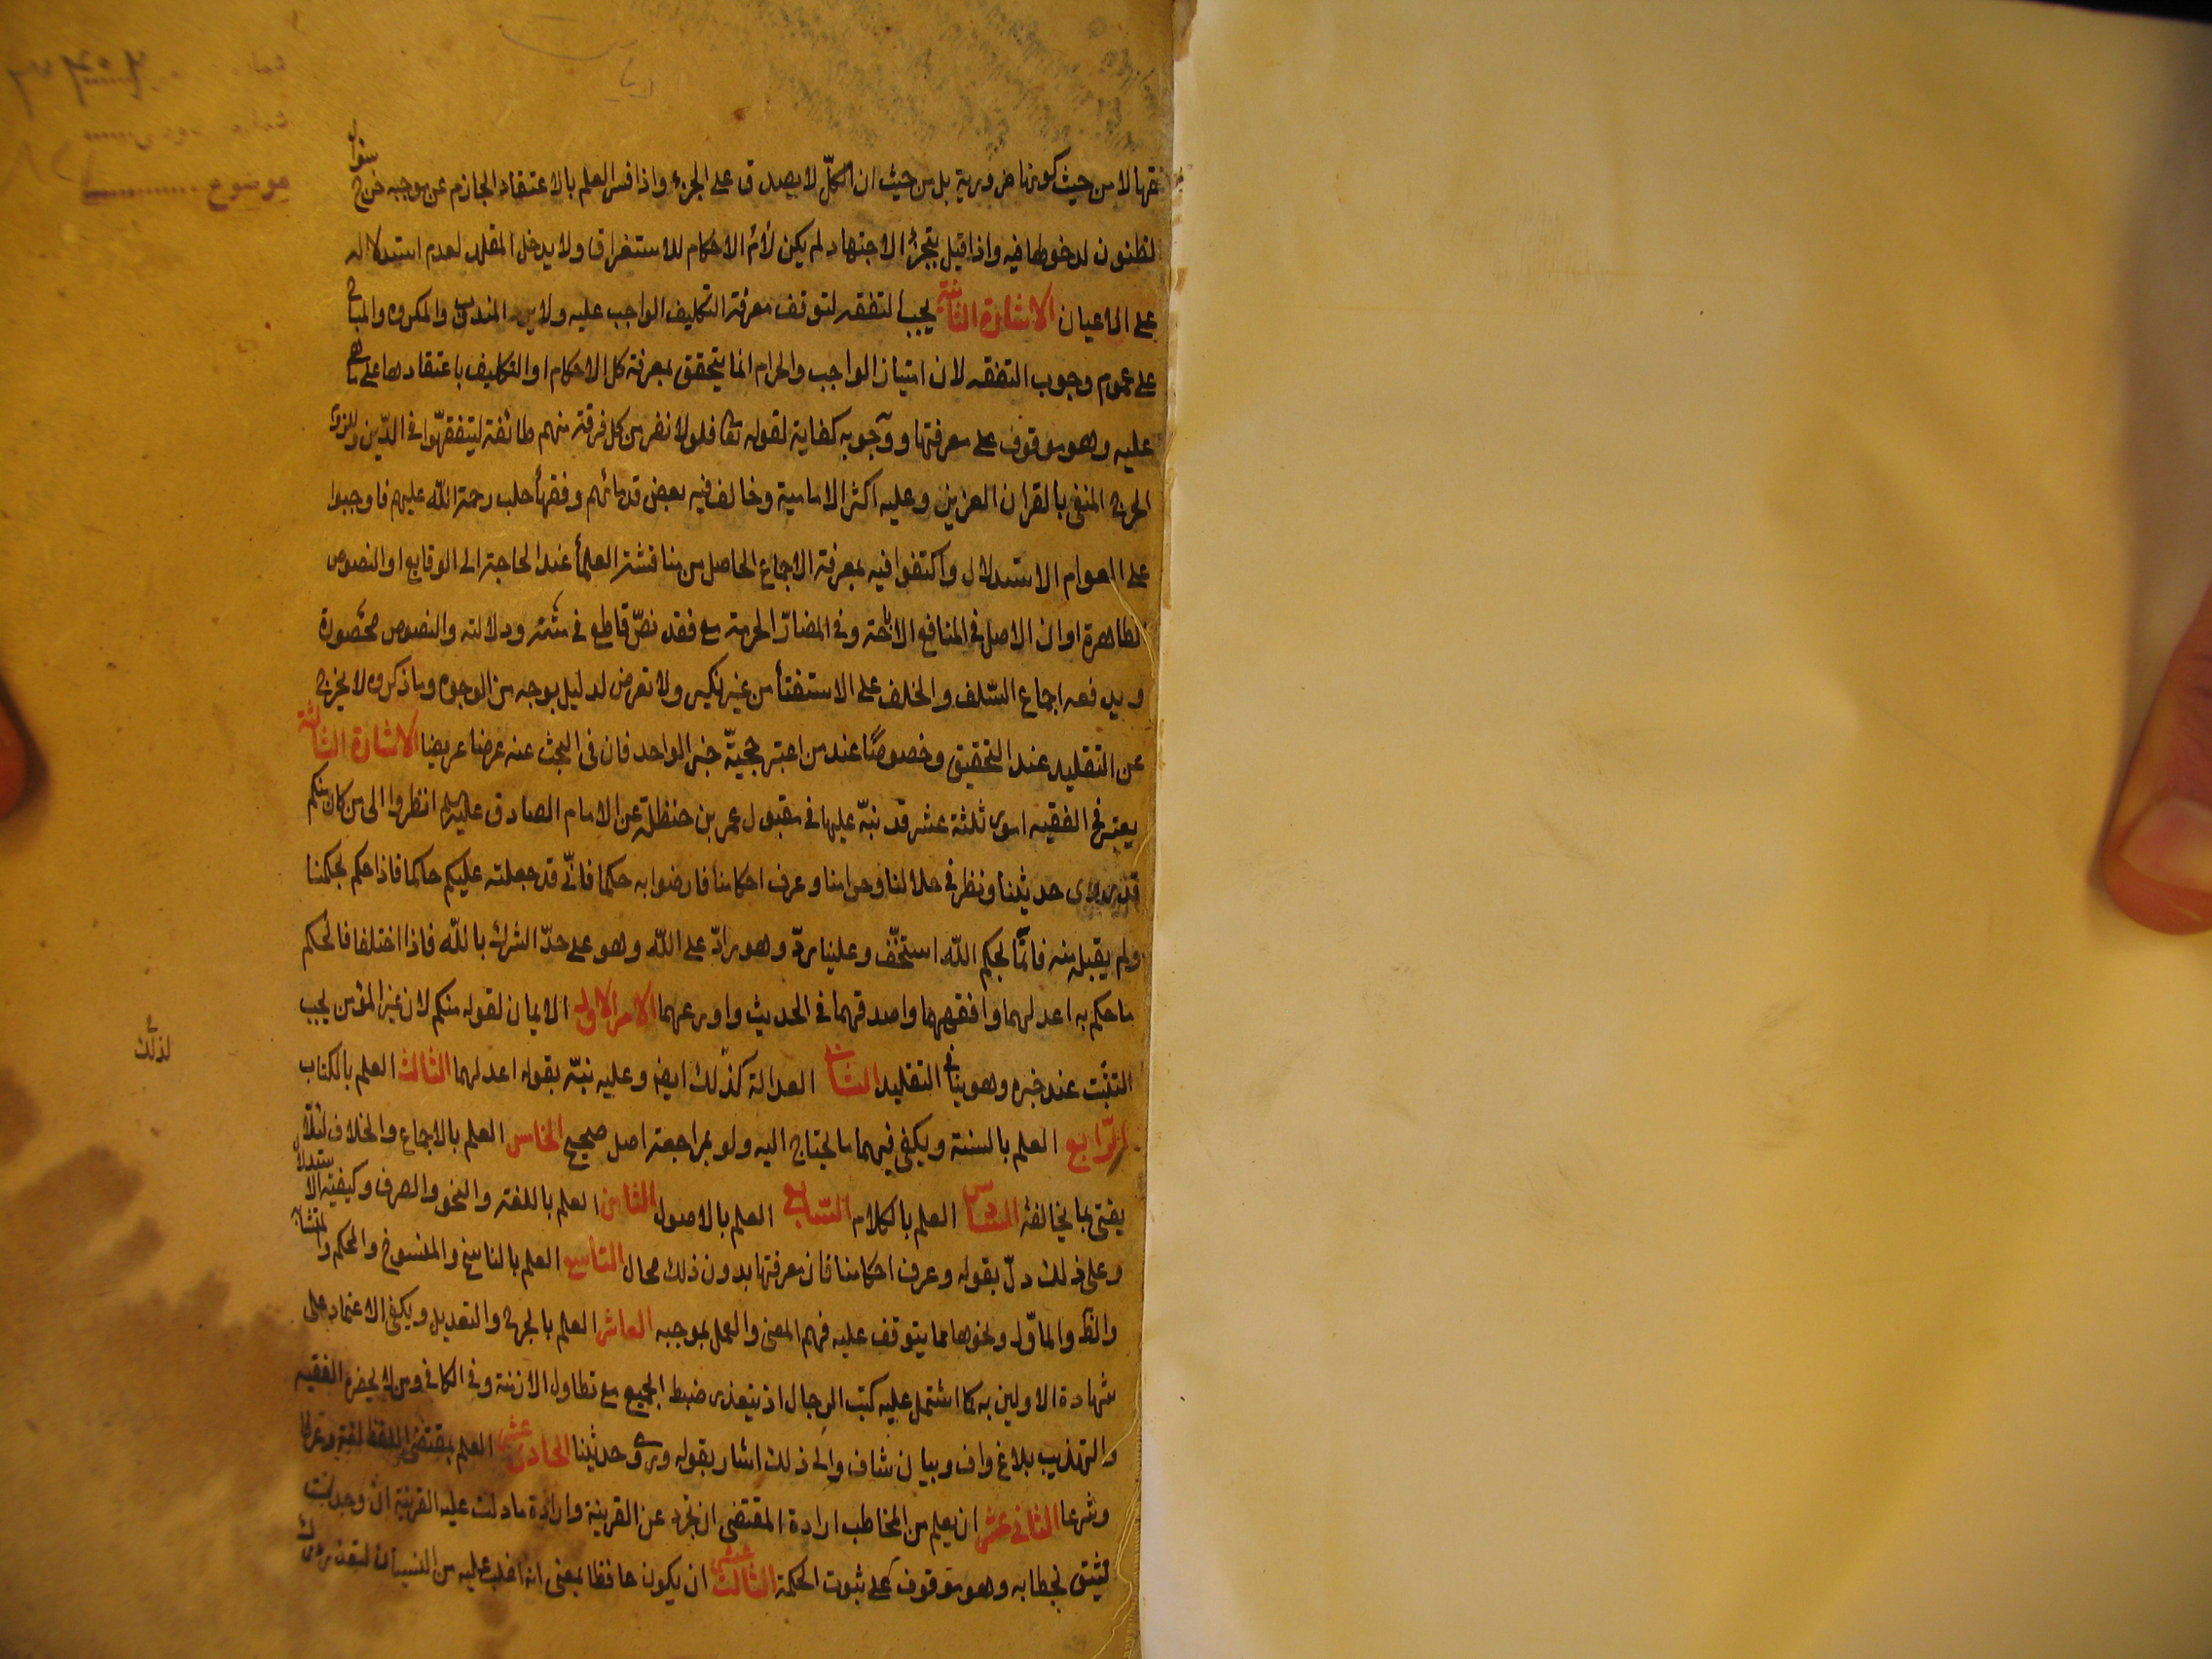 فقها لا من حيث كونها ضرورية بل من حيث ان الكلّ لا يصدق على الجزء واذا فسر العلم بالاعتقاد الجازم عن موجبه خرج
لظنون لدخولها فيه واذا قيل بتجزّئ الاجتهاد لم يكن لام الاحكام للاستغراق ولا يدخل المقلد لعدم استدلاله
على الاعيان الاشارة الثانية يجب التفقه لتوقف معرفة التكليف الواجب عليه ولا يرد المندوب والمكروه والمباح
على عموم وجوب التفقه لان امتياز الواجب والحرام انما يتحقق بمعرفة كل الاحكام او التكليف باعتقادها على ما هي
عليه وهو موقوف على معرفتها ووجوبه كفاية لقوله تعا فلولا نفر من كل فرقة منهم طائفة ليتفقهّوا في الدّين وللزوم
الحرج المنفى بالقران العزيز وعليه اكثر الامامية وخالف فيه بعض قدمائهم وفقهأ حلب رحمة اللّه عليهم فاوجبوا
على العوام الاستدلال واكتفوا فيه بمعرفة الاجماع الحاصل من مناقشة العلمأ عند الحاجة الى الوقايع او النصوص
لظاهرة او ان الاصل في المنافع الاباحة وفي المضارّ الحرمة مع فقد نصّ قاطع في متنه ودلالته والنصوص محصورة
ويدفعه اجماع السّلف والخلف على الاستفتأ من غير نكير ولا تعرض لدليل بوجه من الوجوه وما ذكروه لا يخرج
عن التقليد عند التحقيق وخصوصًا عند من اعتبر حجيّة خبر الواحد فان في البحث عنه عرضا عريضا الاشارة الثالثة
يعتبر في الفقيه امور ثلثة عشر قد نبّه عليها في مقبول عمر بن حنظلة عن الامام الصادق عليه انظروا الى من كان منكم
قد روى حديثنا ونظر في حلالنا وحرامنا وعرف احكامنا فارضوا به حكما فانّى قد جعلته عليكم حاكما فاذا حكم بحكمنا
ولم يقبل منه فانّما بحكم اللّه استخّف وعلينا ردّ وهو رادّ على اللّه وهو على حدّ الشرك باللّه فاذا اختلفا فالحكم
ما حكم به اعدلهما وافقههما واصدقهما في الحديث واورعهما الامر الاول الايمان لقوله منكم لان غير المؤمن يجب
التثبّت عند خبره وهو ينافى التقليد الثانى العدالة كذلك ايضا وعليه نبّه بقوله اعدلهما الثالث العلم بالكتاب
الرّابع العلم بالسنة ويكفى فيهما ما يحتاج اليه ولو بمراجعة اصل صحيح الخامس العلم بالاجماع والخلاف لئلّا
يفتى بما يخالفه السادس العلم بالكلام السّابع العلم بالاصول الثامن العلم باللغة والنحو والصرف وكيفية الاستدلال
وعلى ذلك دلّ بقوله وعرف احكامنا فان معرفتها بدون ذلك محال التاسع العلم بالناسخ والمنسوخ والمحكم والمتشابه
والظ والمأوّل ونحوها مما يتوقف عليه فهم المعنى والعمل بموجبه العاشر العلم بالجرح والتعديل ويكفى الاعتماد على
شهادة الاولين به كما اشتمل عليه كتب الرجال اذ يتعذر ضبط الجميع مع تطاول الازمنة وفي الكافى ومن لا يحضره الفقيه
والتهذيب بلاغ واف وبيان شاف والى ذلك اشار بقوله وروى حديثنا الحادى عشر العلم بمقتضى اللفظ لغة وعرفا
وشرعا الثانى عشر ان يعلم من المخاطب ارادة المقتضى ان تجرد عن القرينة وارادة ما دلت عليه القرينة ان وجدت
ليثق بخطابه وهو موقوف على ثبوت الحكمة الثالث عشر ان يكون حافظا بمعنى انه اغلب عليه من النسيان لتعذر درك
لذلك
موضوع